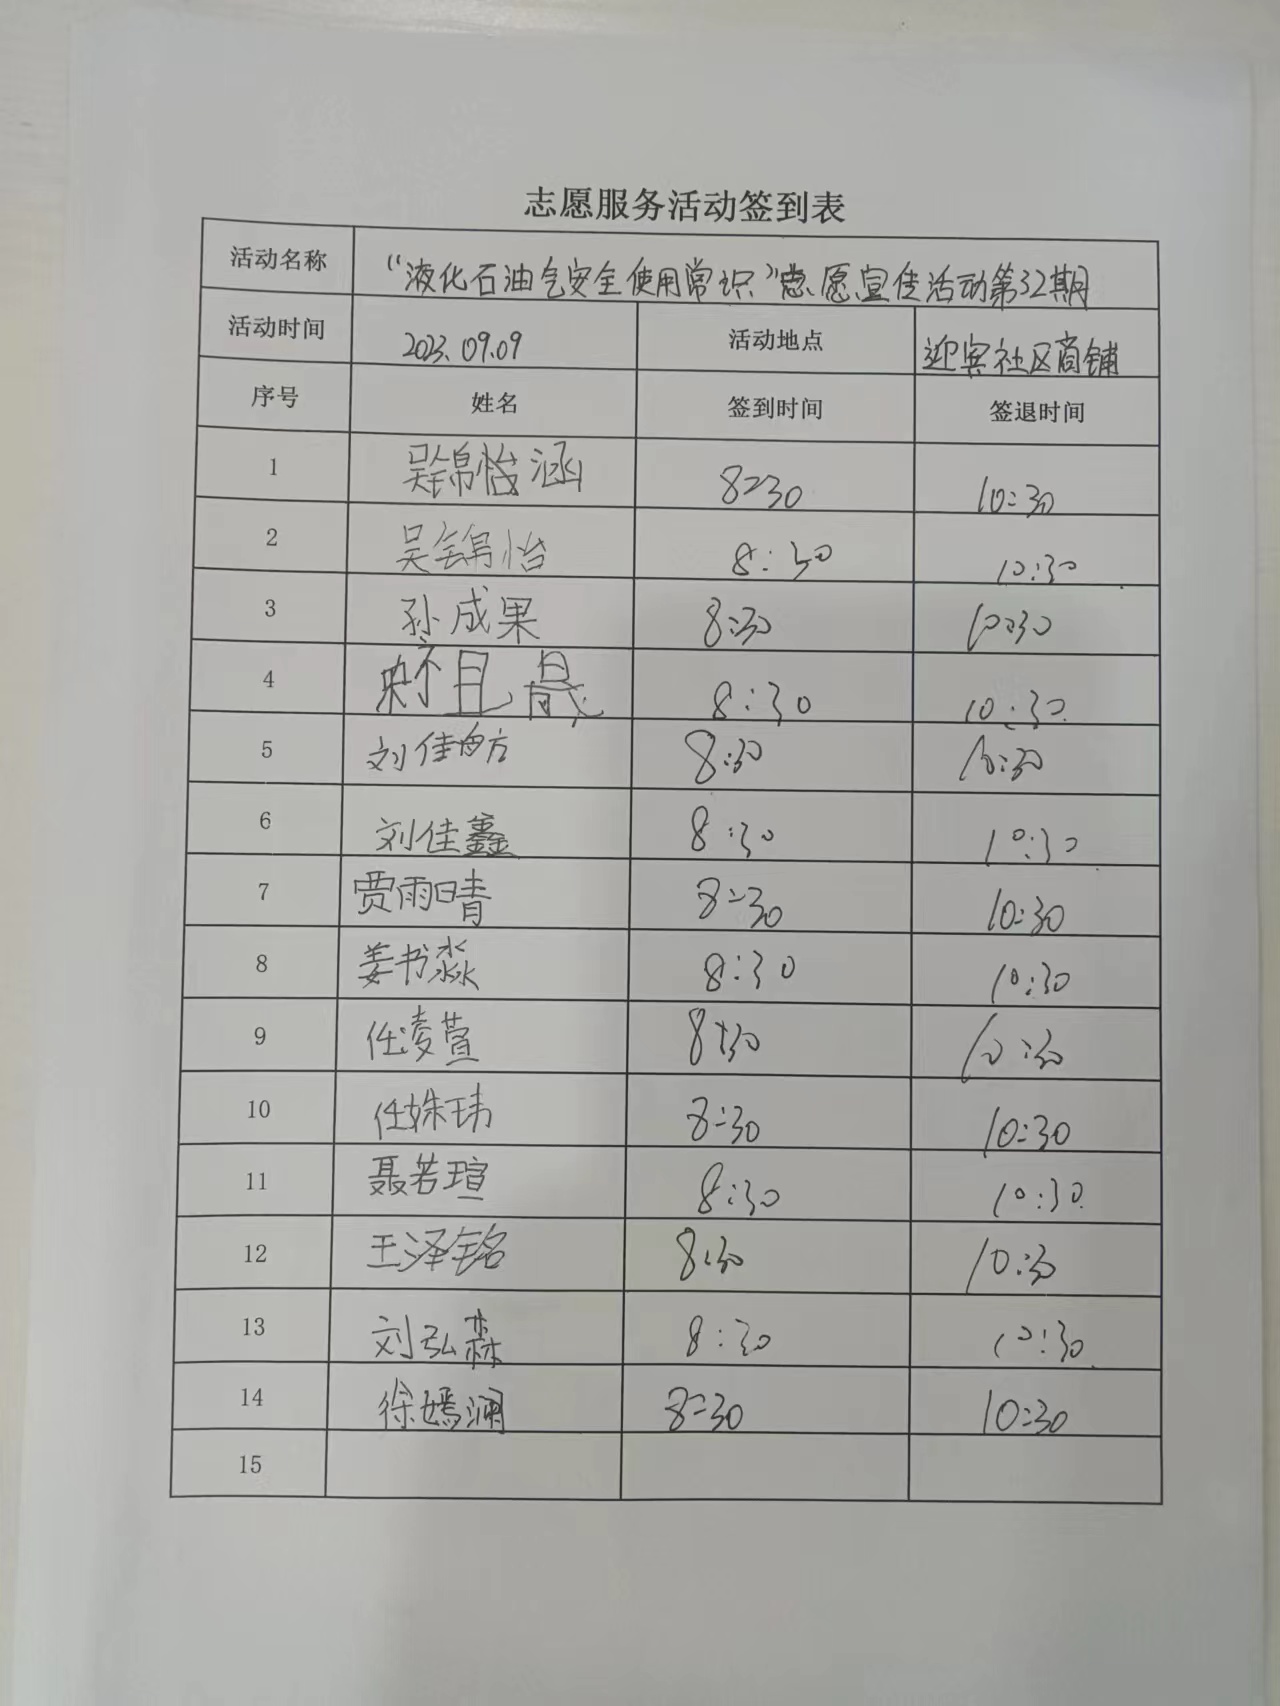 志愿服务活动签到表
活动名称 “液化石油气安全使用常识”志愿宣传活动第32期
活动时间 2023.09.09 活动地点 迎宾社区商铺
序号 姓名 签到时间 签退时间
1 吴锦怡涵 8:30 10:30
2 吴锦怡 8:30 10:30
3 孙成果 8:30 10:30
4 8:30 10:30
5 刘佳昀 8:30 10:30
6 刘佳鑫 8:30 10:30
7 贾雨晴 8:30 10:30
8 姜书淼 8:30 10:30
9 任凌萱 8:30 10:30
10 任姝玮 8:30 10:30
11 聂若瑄 8:30 10:30
12 王泽铭 8:30 10:30
13 刘弘森 8:30 10:30
14 徐嫣澜 8:30 10:30
15